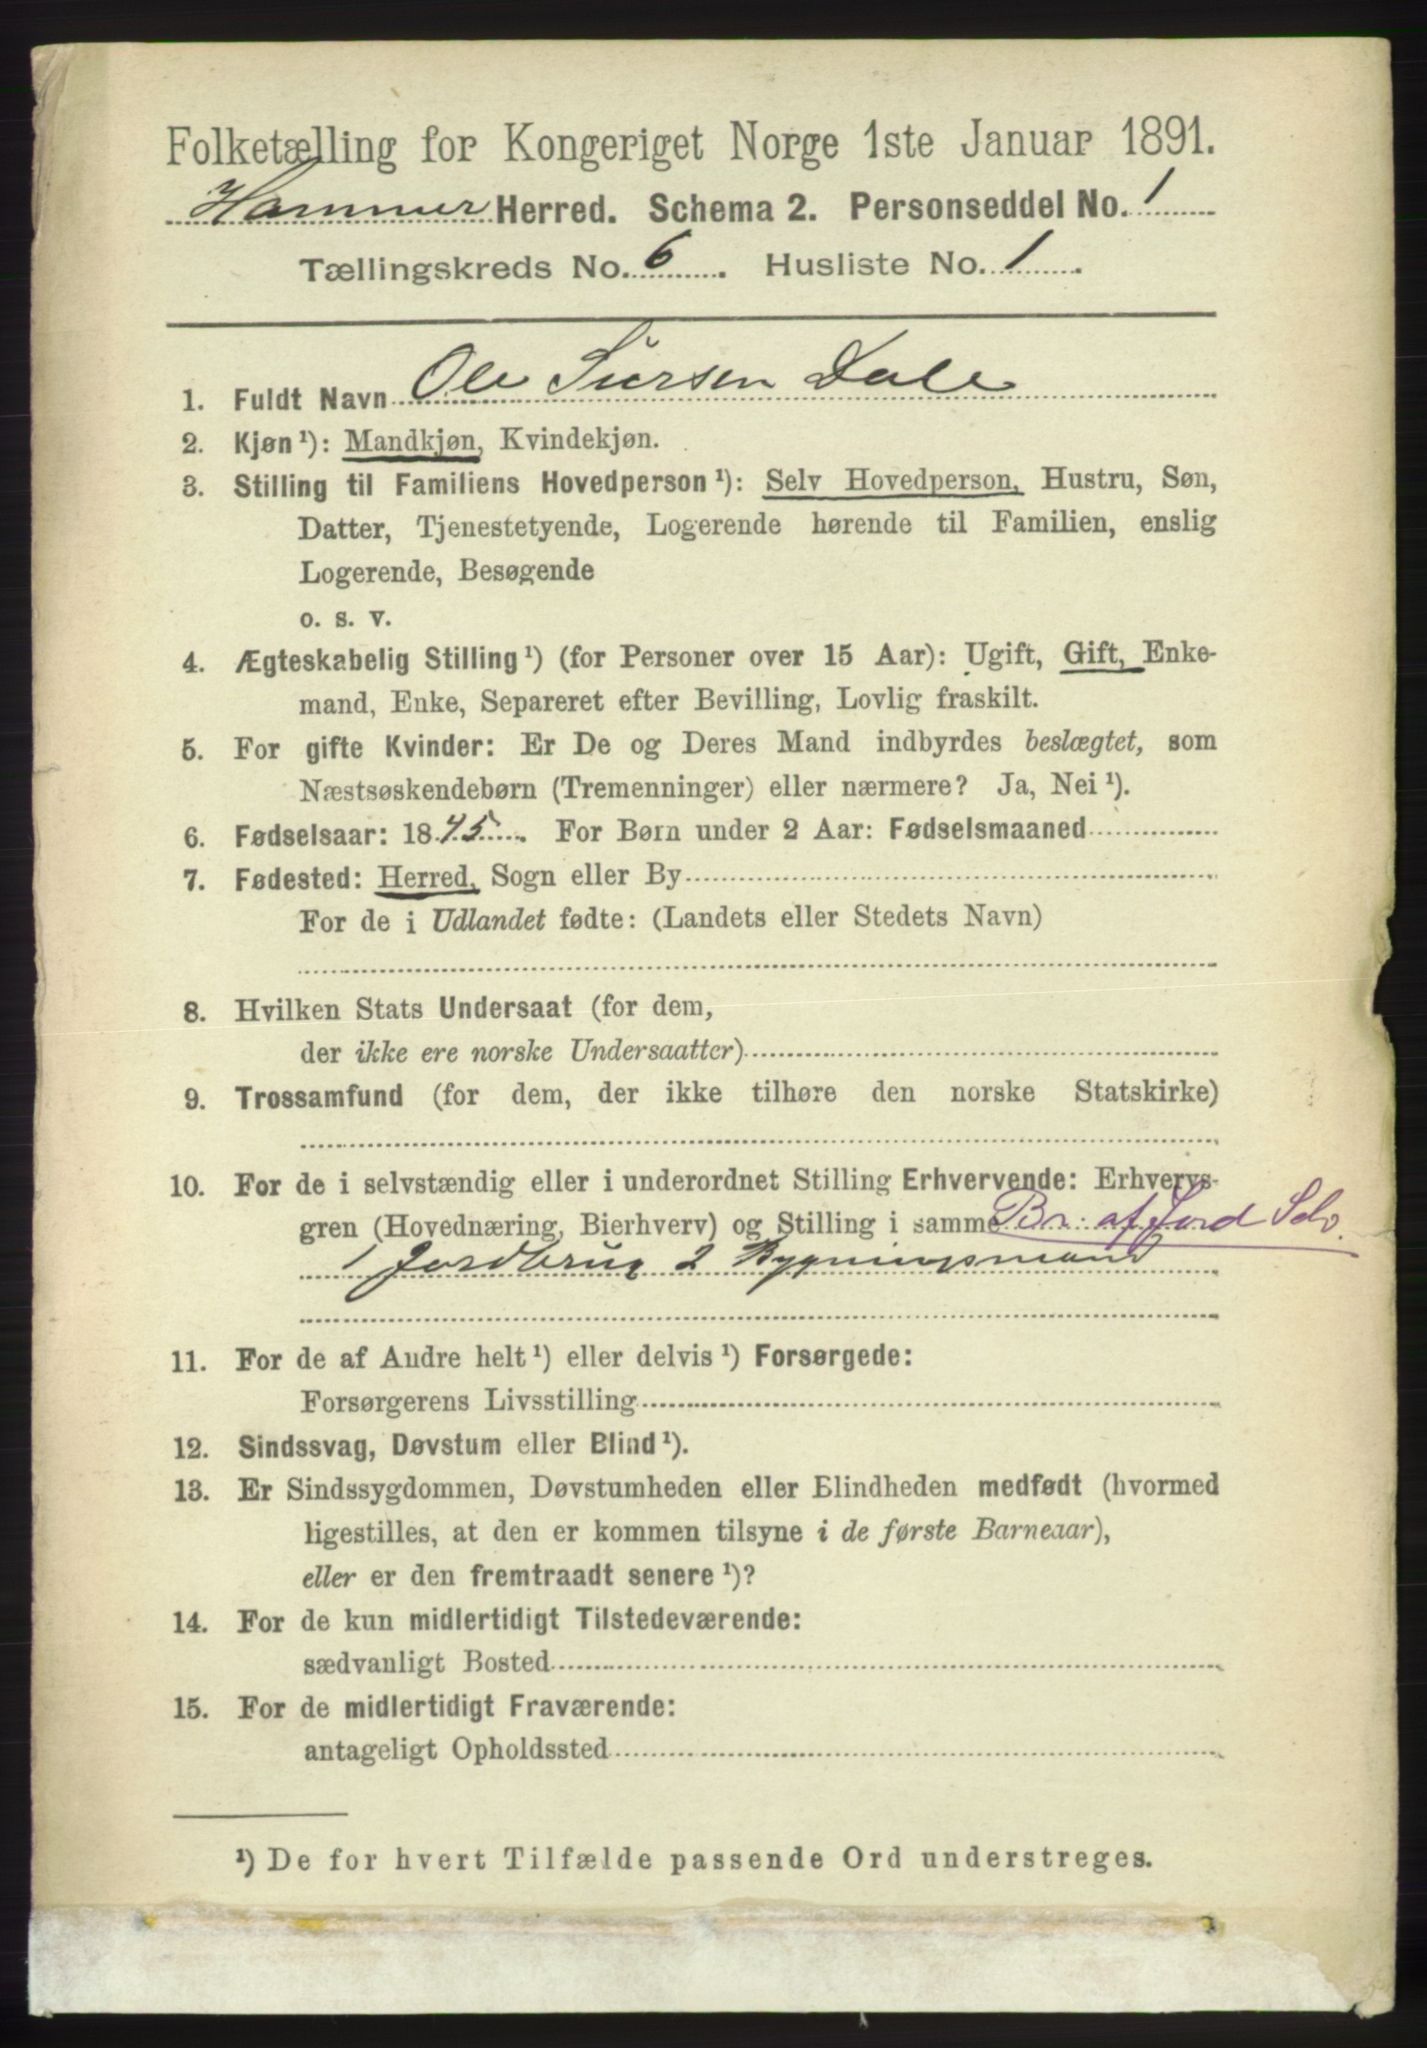 Folketælling for Kongeriget Norge 1ste Januar 1891.
Hammer Herred. Schema 2. Personseddel No. 1
Tællingskreds No. 6. Husliste No. 1.
1. Fuldt Navn Ole Dale
2. Kjøn¹): Mandkjøn, Kvindekjøn.
3. Stilling til Familiens Hovedperson¹): Selv Hovedperson, Hustru, Søn,
Datter, Tjenestetyende, Logerende hørende til Familien, enslig
Logerende, Besøgende
o. s. v.
4. Ægteskabelig Stilling¹) (for Personer over 15 Aar): Ugift, Gift, Enke-
mand, Enke, Separeret efter Bevilling, Lovlig fraskilt.
5. For gifte Kvinder: Er De og Deres Mand indbyrdes beslægtet, som
Næstsøskendebørn (Tremenninger) eller nærmere? Ja, Nei¹).
6. Fødselsaar: 1845. For Børn under 2 Aar: Fødselsmaaned
7. Fødested: Herred, Sogn eller By
For de i Udlandet fødte: (Landets eller Stedets Navn)
8. Hvilken Stats Undersaat (for dem,
der ikke ere norske Undersaatter)
9. Trossamfund (for dem, der ikke tilhøre den norske Statskirke)
10. For de i selvstændig eller i underordnet Stilling Erhvervende: Erhvervs-
gren (Hovednæring, Bierhverv) og Stilling i samme Br. af Jord Selv.
1 Jordbrug 2 Bygningsmand
11. For de af Andre helt¹) eller delvis¹) Forsørgede:
Forsørgerens Livsstilling
12. Sindssvag, Døvstum eller Blind¹).
13. Er Sindssygdommen, Døvstumheden eller Blindheden medfødt (hvormed
ligestilles, at den er kommen tilsyne i de første Barneaar),
eller er den fremtraadt senere¹)?
14. For de kun midlertidigt Tilstedeværende:
sædvanligt Bosted
15. For de midlertidigt Fraværende:
antageligt Opholdssted
¹) De for hvert Tilfælde passende Ord understreges.